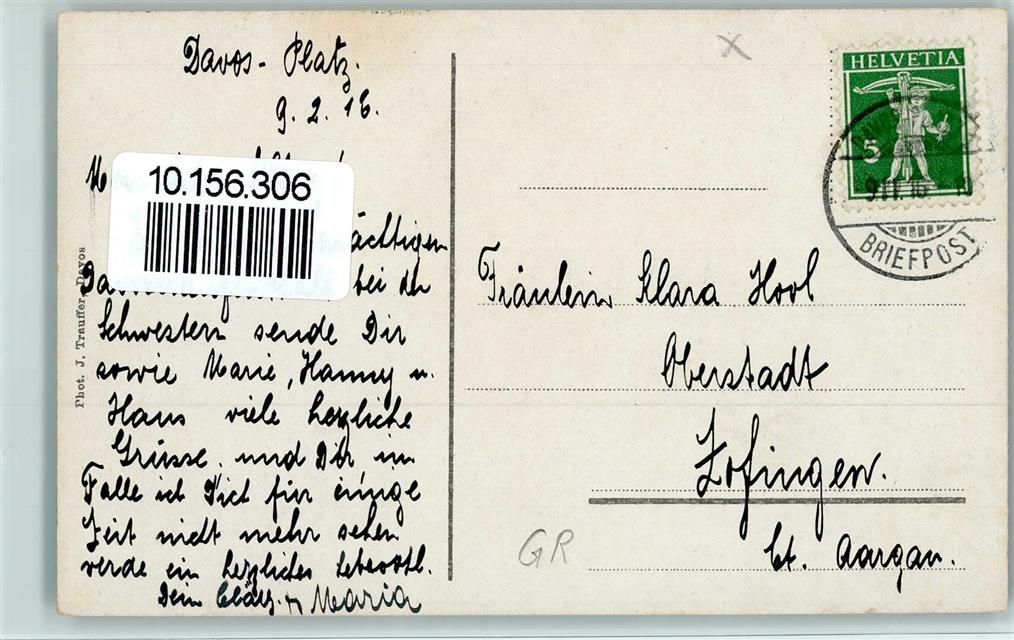 Davos-Platz.
9. 2. 16.
10.156.306
ächtigen
bei der
Schwestern sende Dir
sowie Marie, Hanny u.
Haus viele herzliche
Grüsse und Dir, im
Falle ich Dich für einige
Zeit nicht mehr sehen
werde ein herzliches Lebewohl.
Dein
Maria
Phot. J. Trauffer, Davos
HELVETIA
5
BRIEFPOST
Fräulein Klara Hool
Oberstadt
Zofingen.
Ct. Aargau.
GR